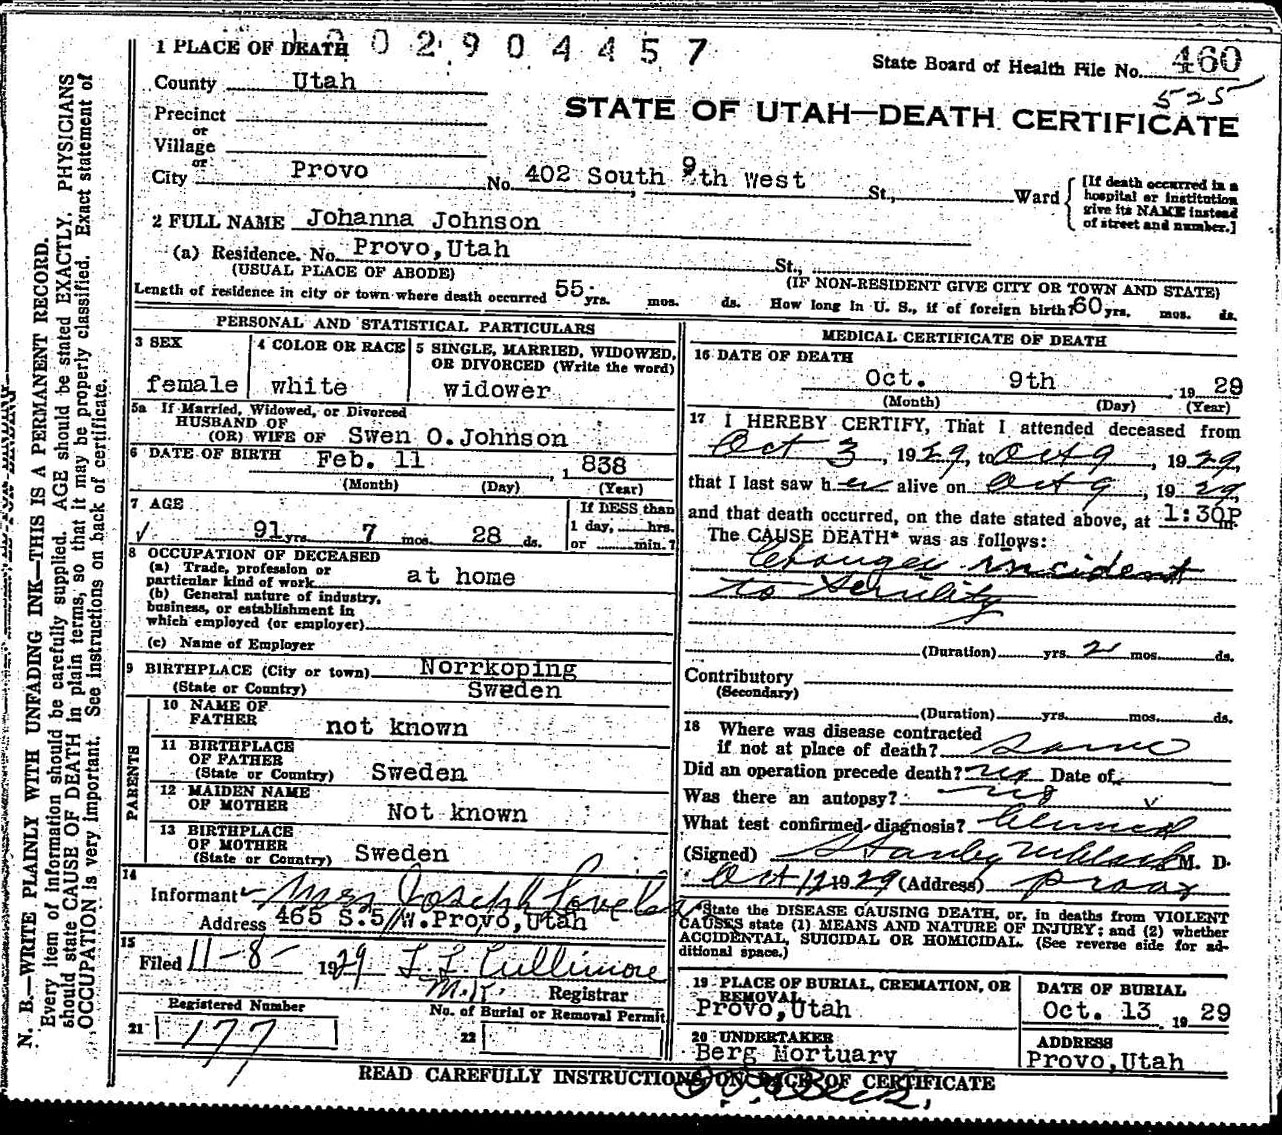 1 PLACE OF DEATH
1 0 0 2 9 0 4 4 5 7
State Board of Health File No. 460
525
County Utah
STATE OF UTAH—DEATH CERTIFICATE
Precinct
or
Village
or
City Provo No. 402 South 9th West St., Ward
[If death occurred in a hospital or institution give its NAME instead of street and number.]
2 FULL NAME Johanna Johnson
(a) Residence. No. Provo, Utah St.,
(USUAL PLACE OF ABODE) (IF NON-RESIDENT GIVE CITY OR TOWN AND STATE)
Length of residence in city or town where death occurred 55 yrs. mos. ds. How long in U. S., if of foreign birth? 60 yrs. mos. ds.
PERSONAL AND STATISTICAL PARTICULARS
3 SEX
female
4 COLOR OR RACE
white
5 SINGLE, MARRIED, WIDOWED, OR DIVORCED (Write the word)
widower
5a If Married, Widowed, or Divorced
HUSBAND OF
(OR) WIFE OF Swen O. Johnson
6 DATE OF BIRTH Feb. 11, 1838
(Month) (Day) (Year)
7 AGE
91 yrs. 7 mos. 28 ds.
If LESS than
1 day, hrs.
or min.?
8 OCCUPATION OF DECEASED
(a) Trade, profession or
particular kind of work at home
(b) General nature of industry,
business, or establishment in
which employed (or employer)
(c) Name of Employer
9 BIRTHPLACE (City or town) Norrkoping
(State or Country) Sweden
PARENTS
10 NAME OF
FATHER not known
11 BIRTHPLACE
OF FATHER
(State or Country) Sweden
12 MAIDEN NAME
OF MOTHER Not known
13 BIRTHPLACE
OF MOTHER
(State or Country) Sweden
14
Informant Mrs Joseph Loveless
Address 465 S. 5 W. Provo, Utah
15
Filed 11-8- 1929 L L Cullimore
Registrar
Registered Number
21 177
No. of Burial or Removal Permit
22
MEDICAL CERTIFICATE OF DEATH
16 DATE OF DEATH
Oct. 9th 1929
(Month) (Day) (Year)
17 I HEREBY CERTIFY, That I attended deceased from
Oct 3, 1929, to Oct 9, 1929,
that I last saw her alive on Oct 9, 1929,
and that death occurred, on the date stated above, at 1:30P m.
The CAUSE DEATH* was as follows:
Changes incident
to Senility
(Duration) yrs. 2 mos. ds.
Contributory
(Secondary)
(Duration) yrs. mos. ds.
18 Where was disease contracted
if not at place of death? Same
Did an operation precede death? no Date of
Was there an autopsy? no
What test confirmed diagnosis? Clinical
(Signed) Stanley M. D.
Oct 12 1929 (Address) Provo
*State the DISEASE CAUSING DEATH, or, in deaths from VIOLENT
CAUSES state (1) MEANS AND NATURE OF INJURY; and (2) whether
ACCIDENTAL, SUICIDAL OR HOMICIDAL. (See reverse side for ad-
ditional space.)
19 PLACE OF BURIAL, CREMATION, OR
REMOVAL
Provo, Utah
DATE OF BURIAL
Oct. 13, 1929
20 UNDERTAKER
Berg Mortuary
ADDRESS
Provo, Utah
READ CAREFULLY INSTRUCTIONS ON BACK OF CERTIFICATE
N. B.—WRITE PLAINLY WITH UNFADING INK—THIS IS A PERMANENT RECORD.
Every item of information should be carefully supplied. AGE should be stated EXACTLY. PHYSICIANS
should state CAUSE OF DEATH in plain terms, so that it may be properly classified. Exact statement of
OCCUPATION is very important. See instructions on back of certificate.